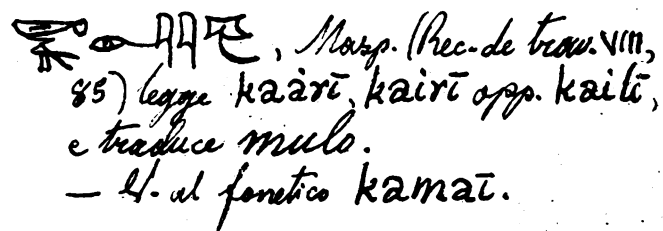 , Masp. (Rec. de trav. VIII,
85) legge kaàrī, kairī opp. kailī,
e traduce mulo.
— V. al fonetico kamaī.